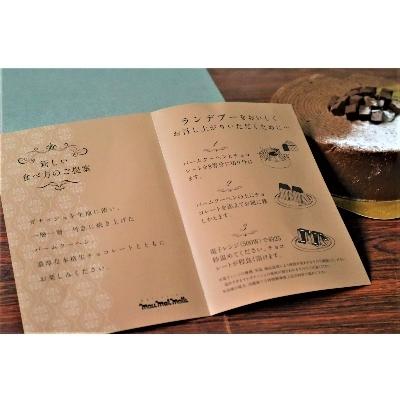 新しい
食べ方のご提案
ガナッシュを生地に使い、
一層一層 丹念に焼き上げた
バームクーヘン。
濃厚な本格生チョコレートとともに
お楽しみください。
mou.Mel.Melk
ランデブーをおいしく
お召し上がりいただくために…
1
バームクーヘンとチョコ
レートを8等分に切り分け
ます。
2
バームクーヘンの上にチョコ
レートを添えてお皿に移
しかえます。
3
電子レンジ(500W)で約25
秒温めてください。チョコ
レートが程良く溶けます。